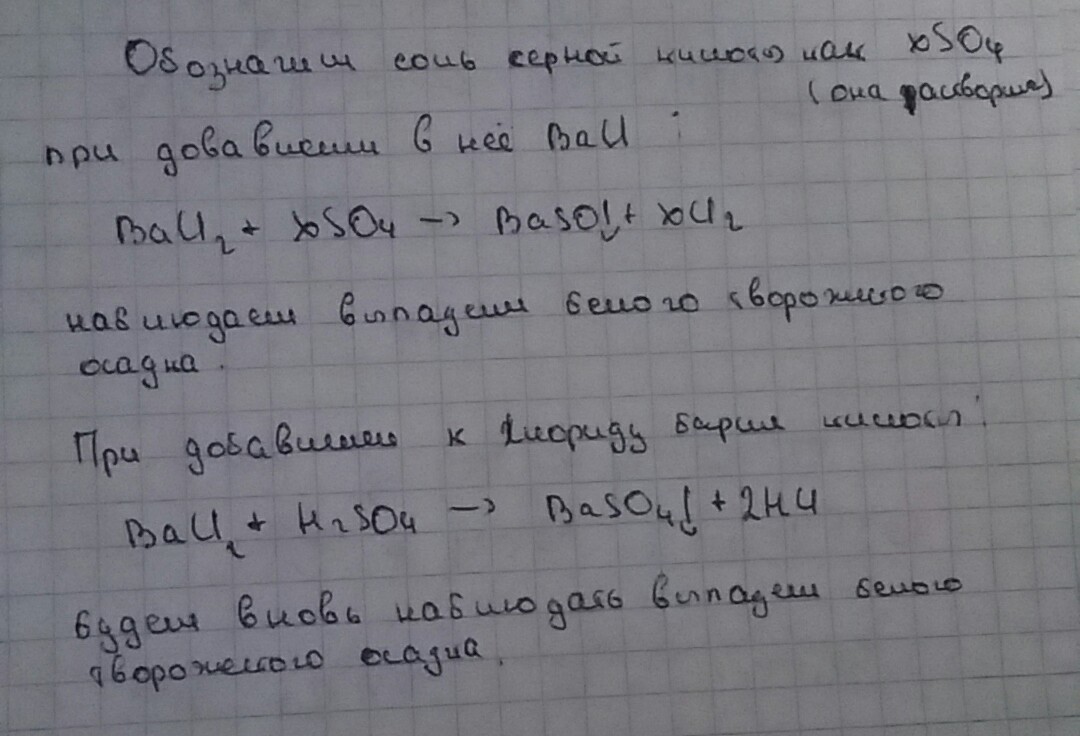 Обозначим соль серной кислоты как xSO₄
(она растворима)
при добавлении в неё BaCl :
BaCl₂ + xSO₄ → BaSO↓ + xCl₂
наблюдаем выпадение белого творожистого
осадка.
При добавлении к хлориду бария кислоты:
BaCl₂ + H₂SO₄ → BaSO₄↓ + 2HCl
будем вновь наблюдать выпадение белого
творожистого осадка.